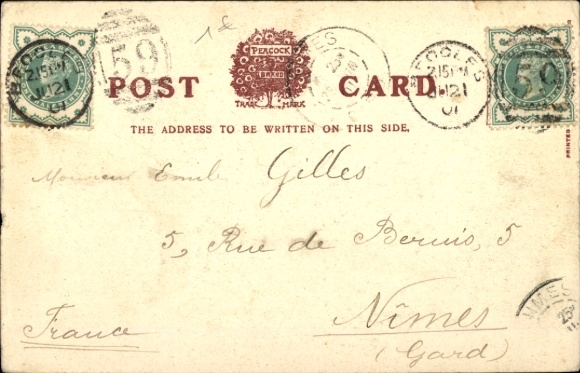 1 d
PEACOCK
BRAND
TRADE MARK
POST CARD
ECCLES
2 15 PM
JU 21
01
59
ECCLES
2 15 PM
JU 21
01
59
THE ADDRESS TO BE WRITTEN ON THIS SIDE,
Monsieur Emile Gilles
5, Rue de Bernis, 5
Nîmes
(Gard)
France